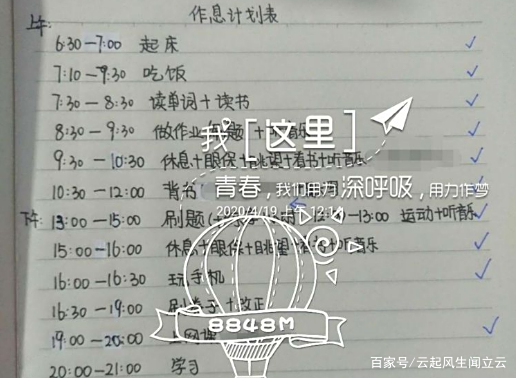 作息计划表
上午:
6:30—7:00 起床
7:10—9:30 吃饭
7:30—8:30 读单词+读书
8:30—9:30 做作业 题 +听音乐
我[这里]
9:30—10:30 休息+眼保+眺望+看书+听音乐
10:30—12:00 背书
青春,我们用力深呼吸,用力作梦
2020/4/19
下午: 13:00—15:00 刷题 —13:00 运动+听音乐
15:00—16:00 休息+眼保+眺望+看书+听音乐
16:00—16:30 玩手机
16:30—19:00 刷卷子+改正
8848M
19:00—20:00 上网课
20:00—21:00 学习
百家号/云起风生闻立云